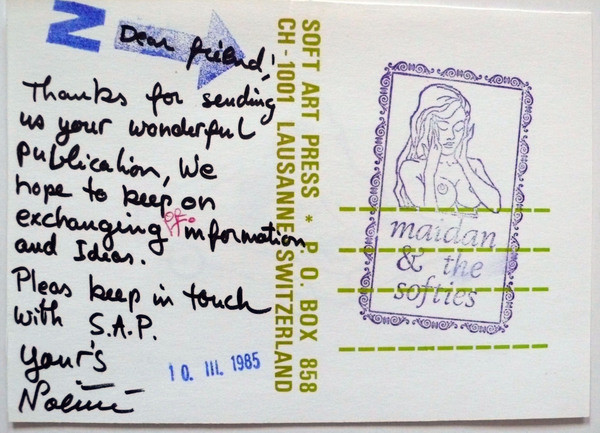 N
Dear friend!
Thanks for sending
us your wonderful
publication, We
hope to keep on
exchanging information
and Ideas.
Pleas keep in touch
with S.A.P.
Your's
Noëmi
10. III. 1985
SOFT ART PRESS * P.O. BOX 858
CH-1001 LAUSANNE SWITZERLAND
maidan
& the
softies